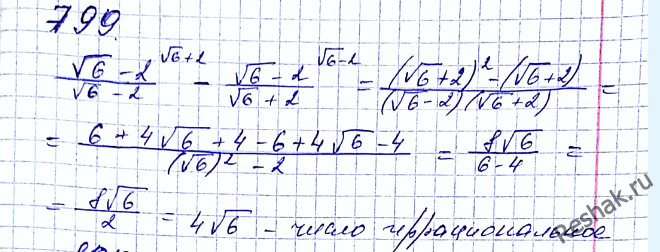 799.
(√6 - 2)/(√6 - 2) ^(√6+2) - (√6 - 2)/(√6 + 2) ^(√6-2) = ((√6+2)² - (√6+2))/((√6-2)(√6+2)) =
= (6 + 4√6 + 4 - 6 + 4√6 - 4)/((√6)² - 2) = 8√6/(6-4) =
= 8√6/2 = 4√6 - число иррациональное
reshak.ru